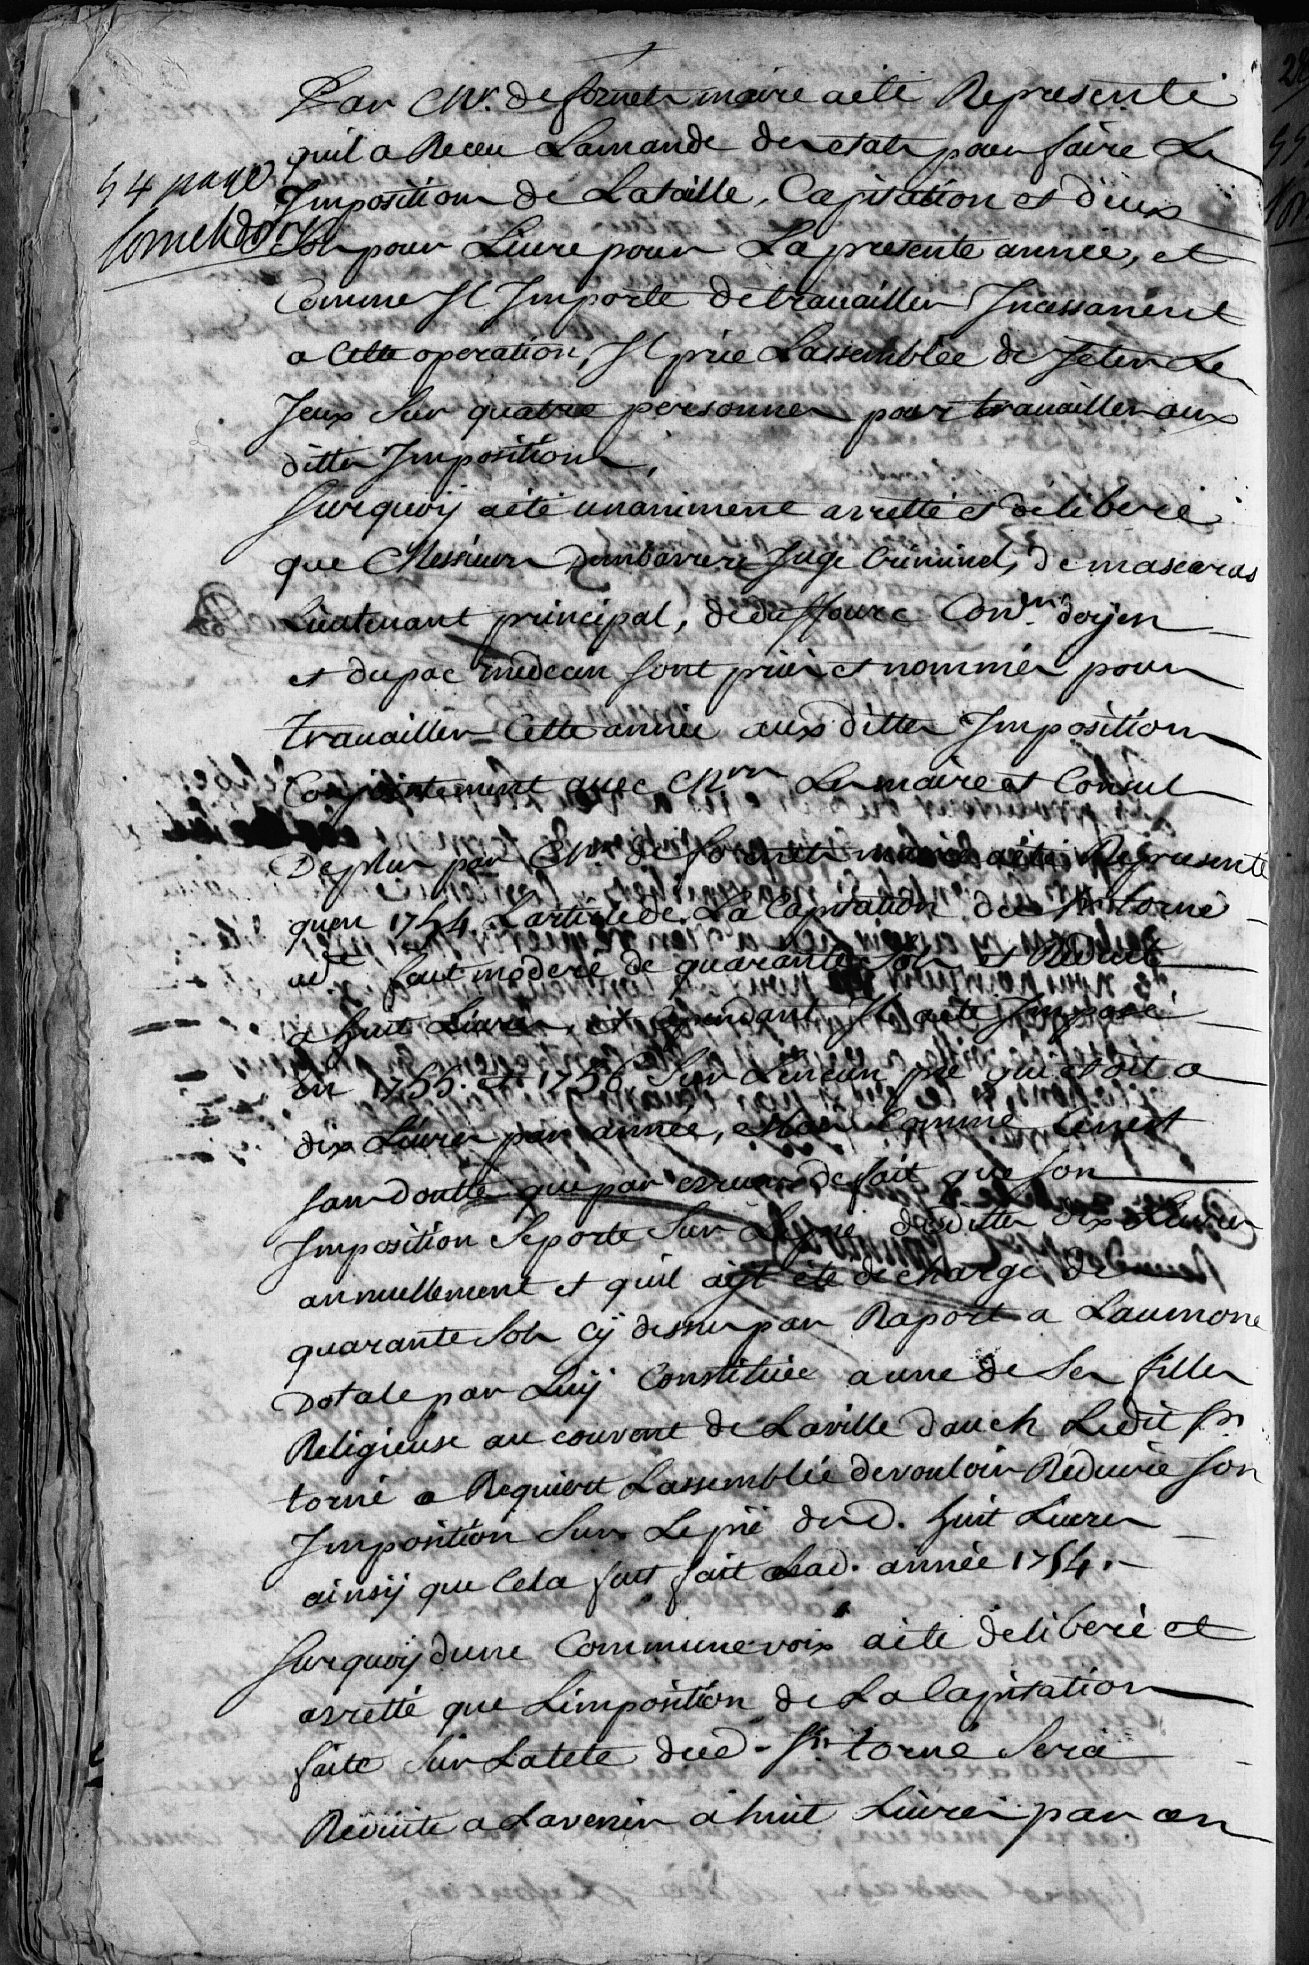 Par Mr. de fornets maire aété Representé
quil a Receu Lamande des etats pour faire Les
54 page
Impositions de Lataille, Capitation et deux
Sols pour Livre pour La presente année, et
Comme Il Importe de travailler Incessament
a Cette operation, Il prie Lassemblée de Jetter Les
Jeux Sur quatre personnes pour travailler aux
dittes Impositions,
Surquoÿ aété unaniment arretté et déliberé
que Messieurs Juge Criminel, de mascaras
Lieutenant principal, deduffourc Conr. doÿen
et dupac medecin sont priés et nommés pour
travailler Cette année aux dittes Impositions
Conjointement avec Mrs Les maire et Consuls
Deplus par Mr de fornets maire aété Representé
quen 1754. Larticle de La Capitation du Sr torné
fut moderé de quarante Sols et Reduit
a huit Livres, et Cependant Il aété Imposé
en 1755. et 1756 Sur Lencien pié qui etoit a
dix Livres par année, Comme Cenest
sans doutte que par erreur de fait que son
Imposition Seporte Sur Lepié desdittes dix Livres
annuellement et quil aÿt été decharge de
quarante Sols Cÿ dessus par Raport a Laumone
Dotale par Luÿ Constituée aune de Ses filles
Religieuse au couvent de Laville dauch Ledit Sr
torné a Requiert Lassemblée devouloir Reduire son
Imposition Sur Lepié desd. huit Livres
ainsÿ que Cela fut fait Lad. année 1754.
Surquoÿ dune Commune voix aété déliberé et
arretté que Limposition de La Capitation
faite Sur Latete dud. Sr torné Sera
Reduite a Lavenir a huit Livres par an